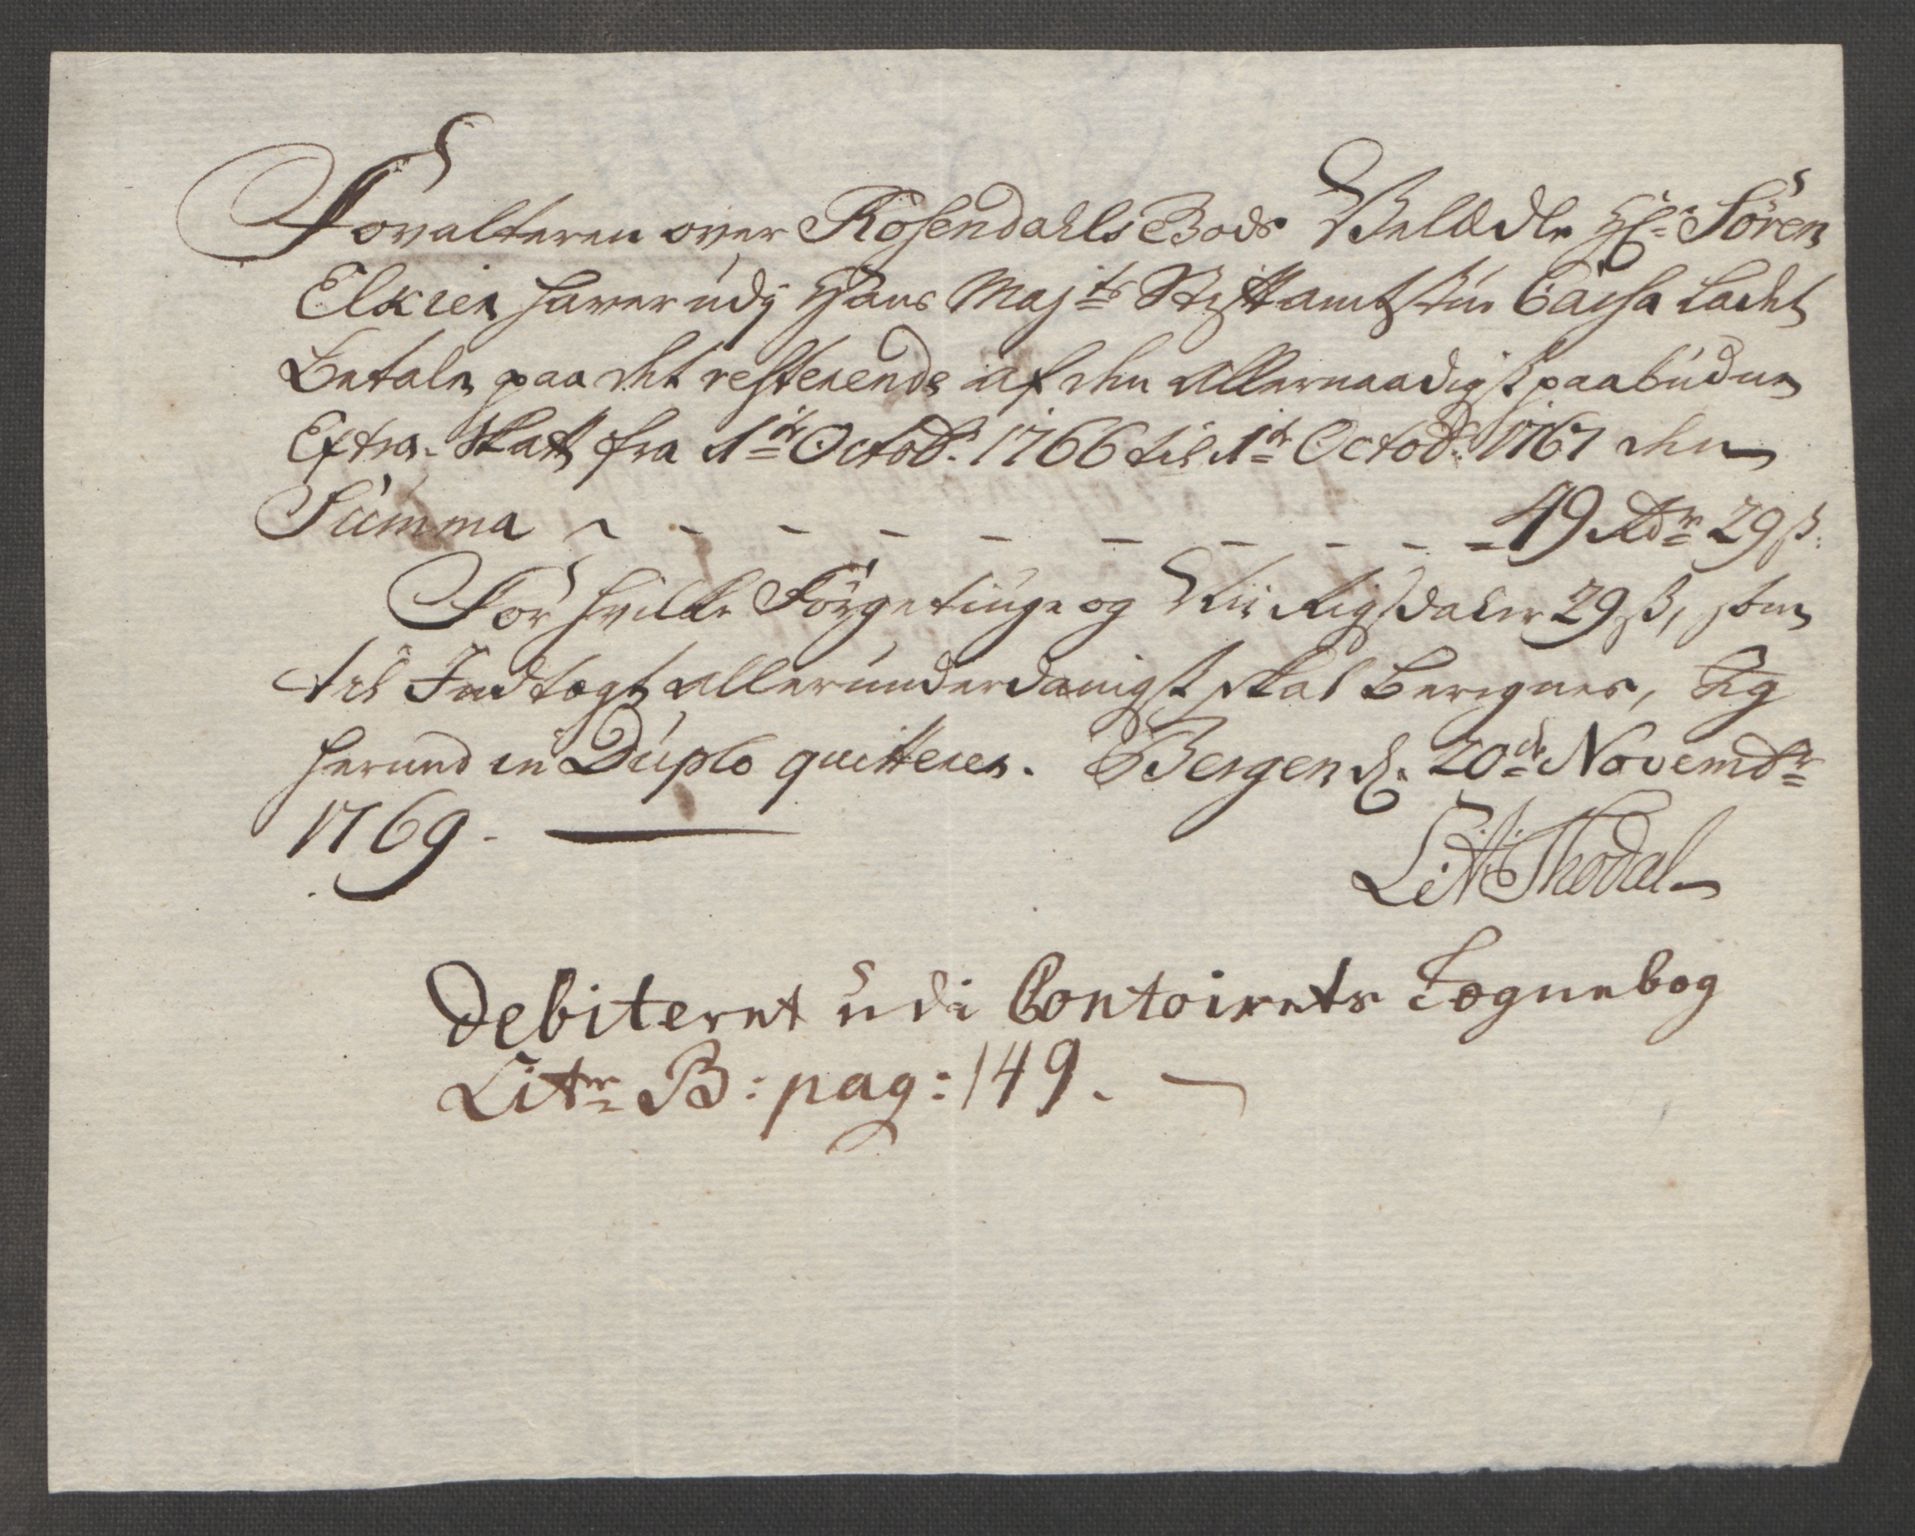 Forvalteren over Rosendahls Gods Velædle Hr. Sören
Elkier haver udj Hans Majts Stiftamtstue Cassa ladet
betale paa det resterende af den allernaadigst paabudne
Extra-Skatt fra 1te Octobr. 1766 til 1te Octobr. 1767 den
Summa - - - - - - - - - - 49 Rdr 29 ß.
For hvilke Förgetiuge og Nii Rigsdaler 29 ß, som
til Indtægt allerunderdanigst skal beregnes, Jeg
herved in Duplo quitterer. Bergen d. 20de Novembr
1769. -
L: A: Thodal
Debiteret udi Contoirets Tegnebog
Litr B: pag: 149.